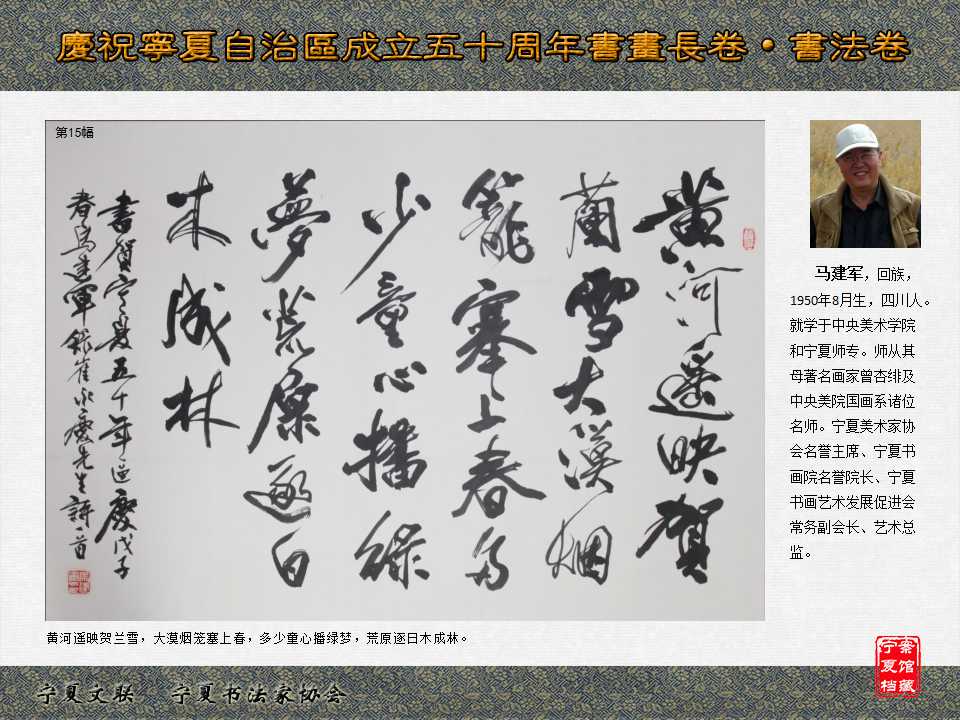 慶祝寧夏自治區成立五十周年書畫長卷·書法卷
第15幅
黄河遥映賀
蘭雪大漠烟
籠塞上春多
少童心播綠
夢荒原逐日
木成林
書賀宁夏五十年區慶戊子
春馬建軍錄崔永慶先生詩一首
马建军，回族，
1950年8月生，四川人。
就学于中央美术学院
和宁夏师专。师从其
母著名画家曾杏绯及
中央美院国画系诸位
名师。宁夏美术家协
会名誉主席、宁夏书
画院名誉院长、宁夏
书画艺术发展促进会
常务副会长、艺术总
监。
黄河遥映贺兰雪，大漠烟笼塞上春，多少童心播绿梦，荒原逐日木成林。
宁夏档
案馆藏
宁夏文联 宁夏书法家协会